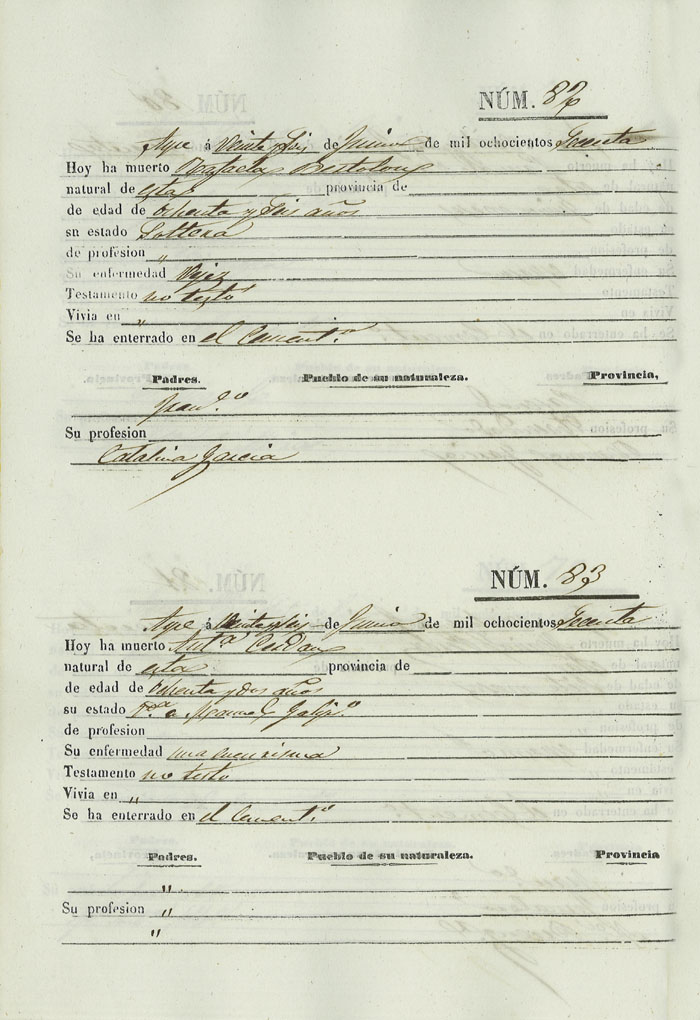 NÚM. 82
Aspe á Veinte y Seis de Junio de mil ochocientos Secenta
Hoy ha muerto Rafaela
natural de esta provincia de
de edad de ochenta y seis años
su estado Soltera
de profesion „
Su enfermedad Vejez
Testamento no testó
Vivia en „
Se ha enterrado en el Cement.º
Padres. Pueblo de su naturaleza. Provincia,
Fran.co
Su profesion
Catalina Garcia
NÚM. 83
Aspe á Veinte y Seis de Junio de mil ochocientos Secenta
Hoy ha muerto Ant.ª
natural de esta provincia de
de edad de ochenta y dos años
su estado
de profesion
Su enfermedad una
Testamento no testó
Vivia en „
Se ha enterrado en el Cement.º
Padres. Pueblo de su naturaleza. Provincia
„
Su profesion „
„